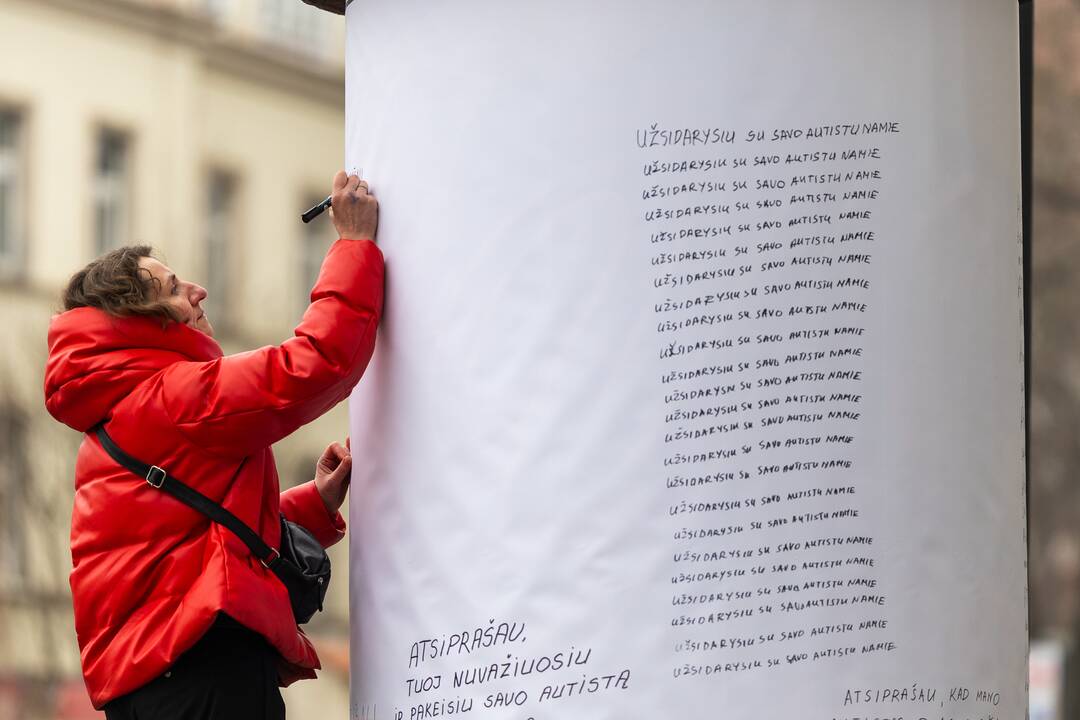 UŽSIDARYSIU SU SAVO AUTISTU NAMIE
UŽSIDARYSIU SU SAVO AUTISTU NAMIE
UŽSIDARYSIU SU SAVO AUTISTU NAMIE
UŽSIDARYSIU SU SAVO AUTISTU NAMIE
UŽSIDARYSIU SU SAVO AUTISTU NAMIE
UŽSIDARYSIU SU SAVO AUTISTU NAMIE
UŽSIDARYSIU SU SAVO AUTISTU NAMIE
UŽSIDARYSIU SU SAVO AUTISTU NAMIE
UŽSIDARYSIU SU SAVO AUTISTU NAMIE
UŽSIDARYSIU SU SAVO AUTISTU NAMIE
UŽSIDARYSIU SU SAVO AUTISTU NAMIE
UŽSIDARYSIU SU SAVO AUTISTU NAMIE
UŽSIDARYSIU SU SAVO AUTISTU NAMIE
UŽSIDARYSIU SU SAVO AUTISTU NAMIE
UŽSIDARYSIU SU SAVO AUTISTU NAMIE
UŽSIDARYSIU SU SAVO AUTISTU NAMIE
UŽSIDARYSIU SU SAVO AUTISTU NAMIE
UŽSIDARYSIU SU SAVO AUTISTU NAMIE
UŽSIDARYSIU SU SAVO AUTISTU NAMIE
UŽSIDARYSIU SU SAVO AUTISTU NAMIE
UŽSIDARYSIU SU SAVO AUTISTU NAMIE
UŽSIDARYSIU SU SAVO AUTISTU NAMIE
UŽSIDARYSIU SU SAVO AUTISTU NAMIE
UŽSIDARYSIU SU SAVO AUTISTU NAMIE
ATSIPRAŠAU,
TUOJ NUVAŽIUOSIU
IR PAKEISIU SAVO AUTISTĄ
ATSIPRAŠAU, KAD MANO